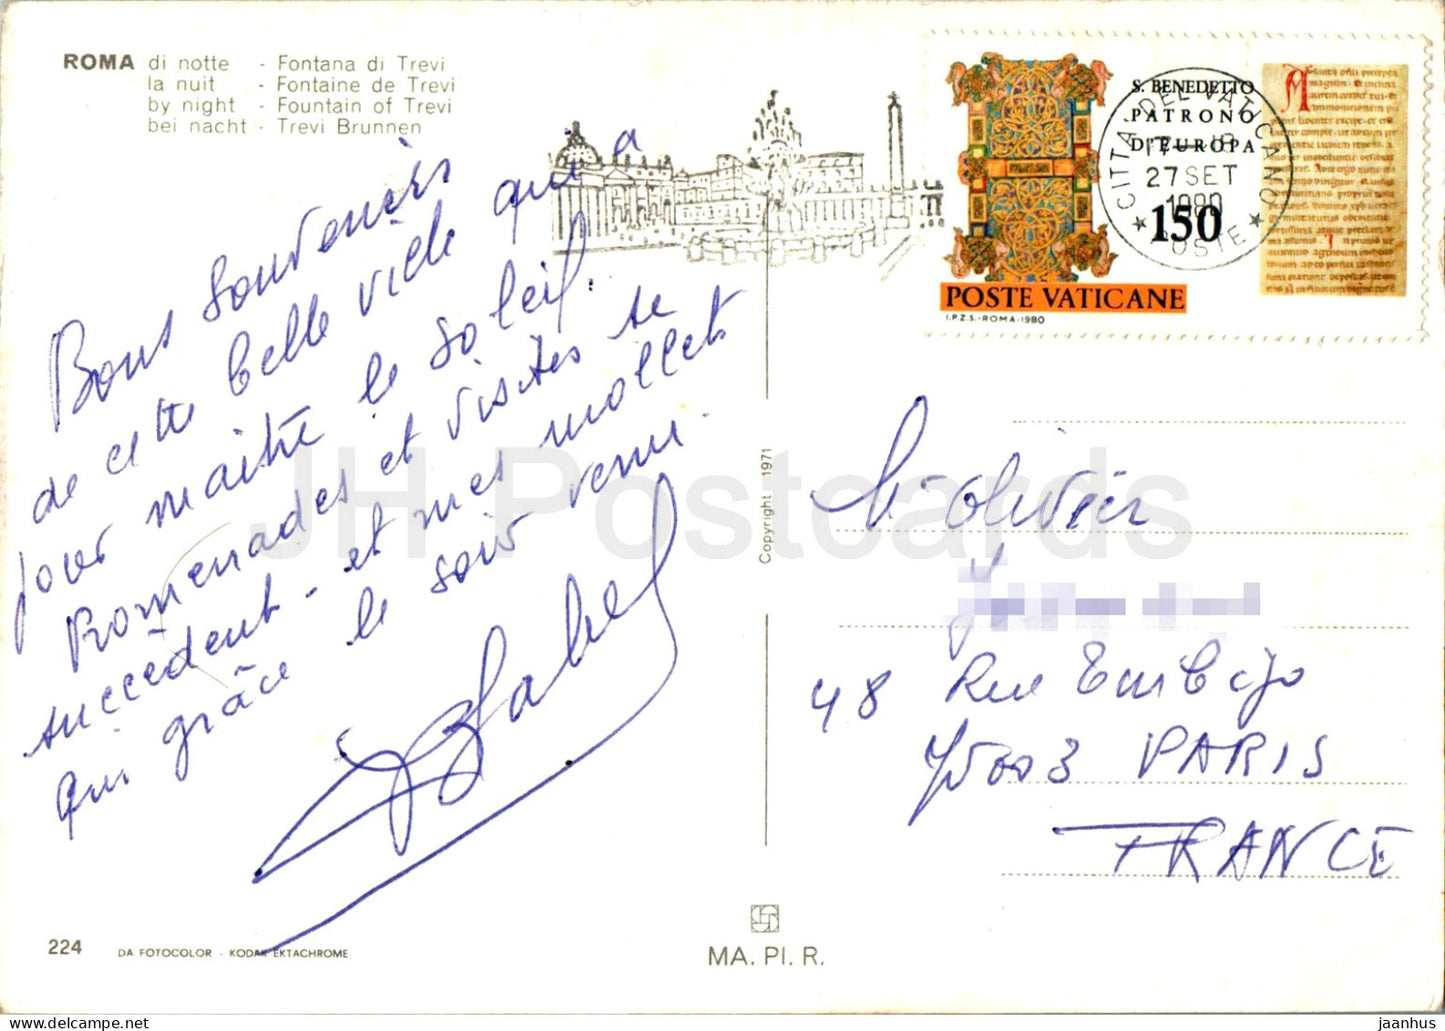 ROMA di notte - Fontana di Trevi
la nuit - Fontaine de Trevi
by night - Fountain of Trevi
bei nacht - Trevi Brunnen
Bons souvenirs
de cette belle ville qui a
pour maître le soleil.
Promenades et visites se
succèdent - et mes mollets
qui grâce le soir venu.
S. BENEDETTO
PATRONO
D'EUROPA
150
POSTE VATICANE
I.P.Z.S.-ROMA-1980
CITTA DEL VATICANO
27 SET
1980
POSTE
Copyright 1971
Olivier
48 Rue
75003 PARIS
FRANCE
224
DA FOTOCOLOR - KODAK EKTACHROME
MA. PI. R.
JH Postcards
jaanhus | delcampe.net